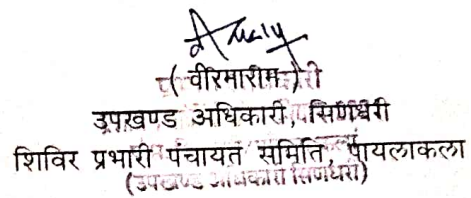 ( वीरमाराम )
उपखण्ड अधिकारी, सिणधरी
शिविर प्रभारी पंचायत समिति, पायलाकला
(उपखण्ड अधिकारी सिणधरी)